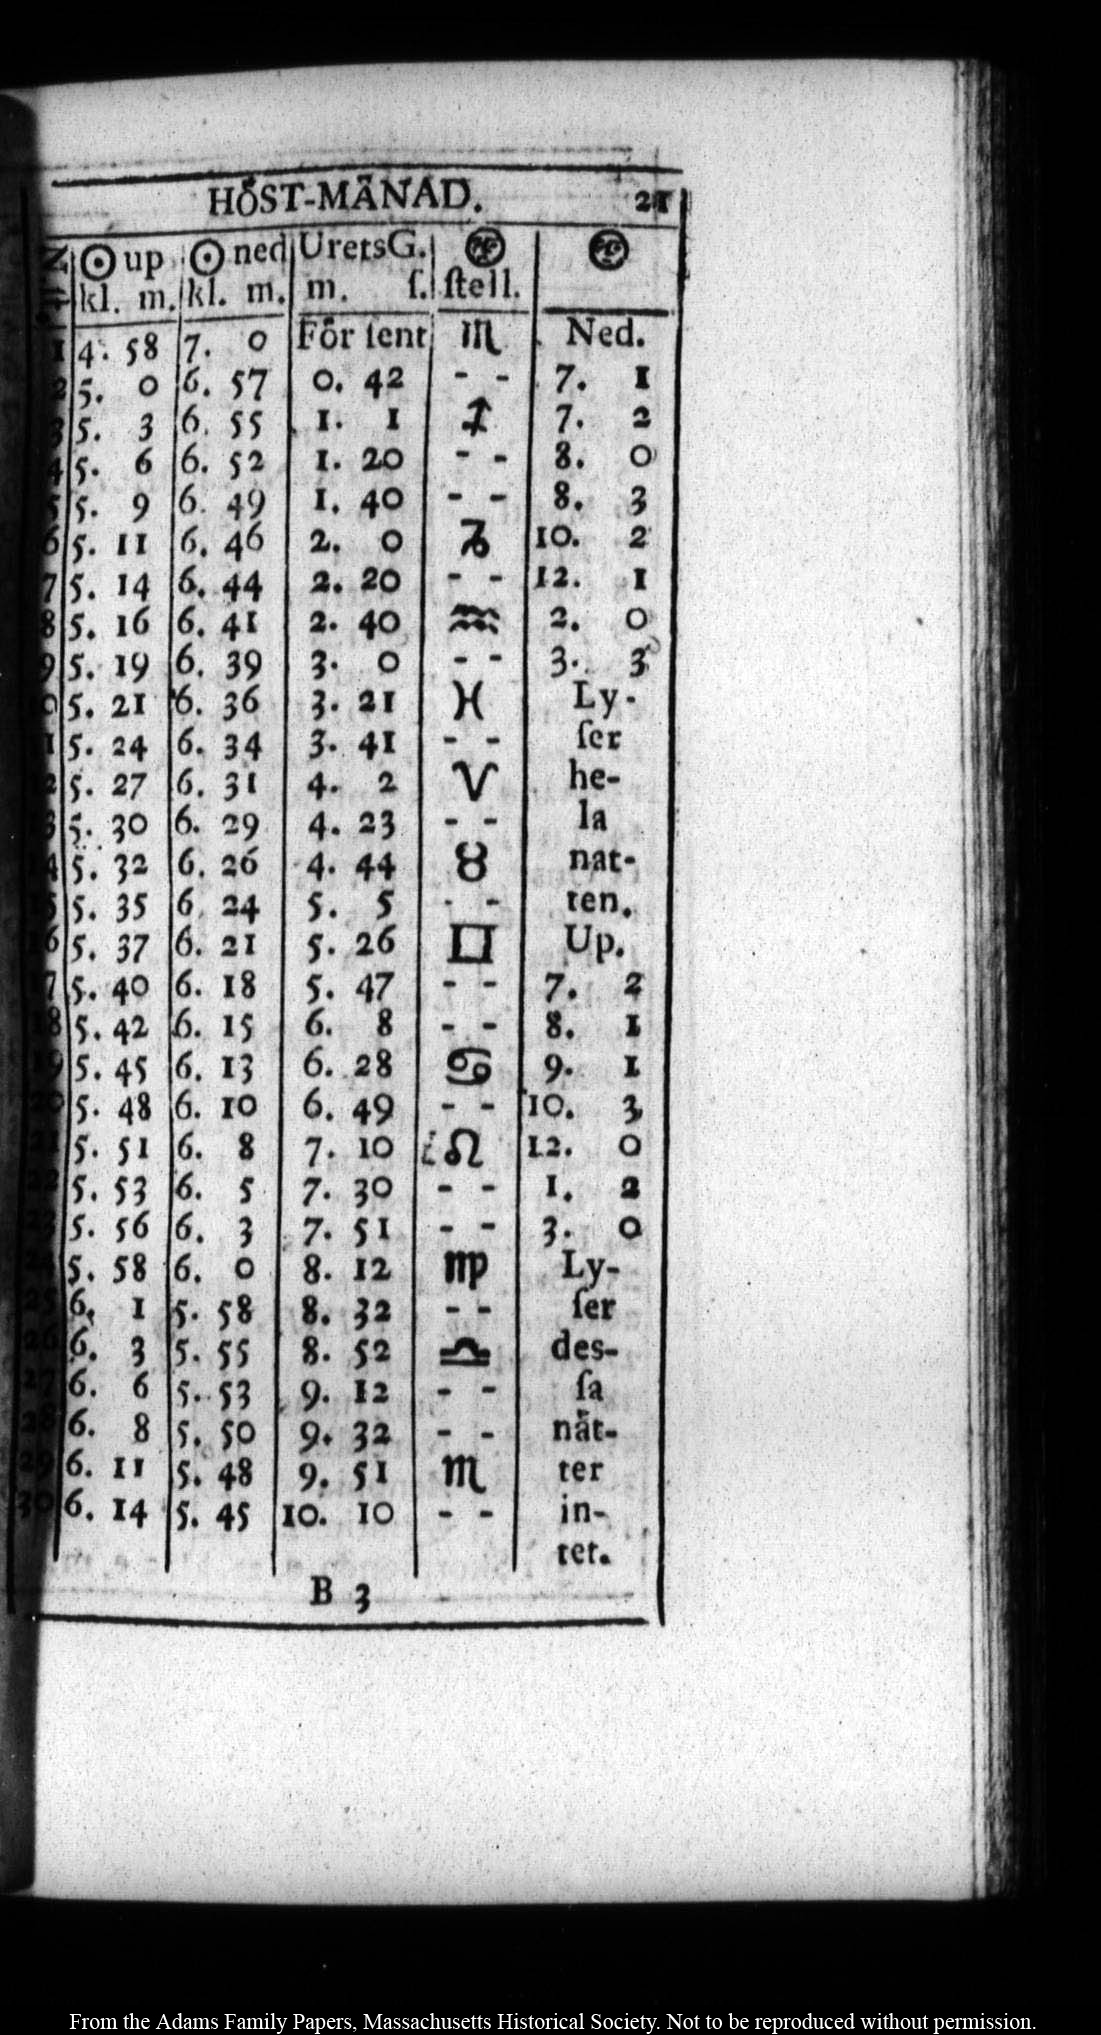 HÖST-MÅNAD. 21
☉ up ☉ ned UretsG.
kl. m. kl. m. m. ſ. ſtell.
1 4. 58 7. 0 För ſent ♏ Ned.
2 5. 0 6. 57 0. 42 - - 7. 1
3 5. 3 6. 55 1. 1 ♐ 7. 2
4 5. 6 6. 52 1. 20 - - 8. 0
5 5. 9 6. 49 1. 40 - - 8. 3
6 5. 11 6. 46 2. 0 ♑ 10. 2
7 5. 14 6. 44 2. 20 - - 12. 1
8 5. 16 6. 41 2. 40 ♒ 2. 0
9 5. 19 6. 39 3. 0 - - 3. 3
0 5. 21 6. 36 3. 21 ♓ Ly-
1 5. 24 6. 34 3. 41 - - ſer
2 5. 27 6. 31 4. 2 ♈ he-
3 5. 30 6. 29 4. 23 - - la
14 5. 32 6. 26 4. 44 ♉ nat-
15 5. 35 6. 24 5. 5 - - ten.
16 5. 37 6. 21 5. 26 ♊ Up.
7 5. 40 6. 18 5. 47 - - 7. 2
18 5. 42 6. 15 6. 8 - - 8. 1
19 5. 45 6. 13 6. 28 ♋ 9. 1
20 5. 48 6. 10 6. 49 - - 10. 3
21 5. 51 6. 8 7. 10 ♌ 12. 0
22 5. 53 6. 5 7. 30 - - 1. 2
23 5. 56 6. 3 7. 51 - - 3. 0
5. 58 6. 0 8. 12 ♍ Ly-
25 6. 1 5. 58 8. 32 - - ſer
26 6. 3 5. 55 8. 52 ♎ des-
27 6. 6 5. 53 9. 12 - - ſa
28 6. 8 5. 50 9. 32 - - nät-
29 6. 11 5. 48 9. 51 ♏ ter
30 6. 14 5. 45 10. 10 - - in-
tet.
B 3
From the Adams Family Papers, Massachusetts Historical Society. Not to be reproduced without permission.